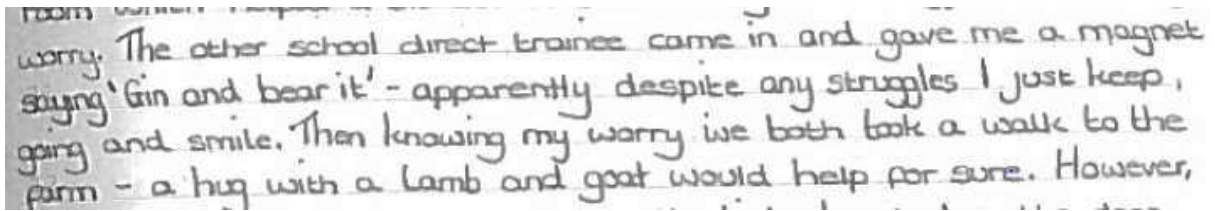 worry. The other school direct trainee came in and gave me a magnet
sayng 'Gin and bear it' - apparently despite any struggles I just keep,
going and smile. Then knowing my worry we both took a walk to the
farm - a hug with a lamb and goat would help for sure. However,